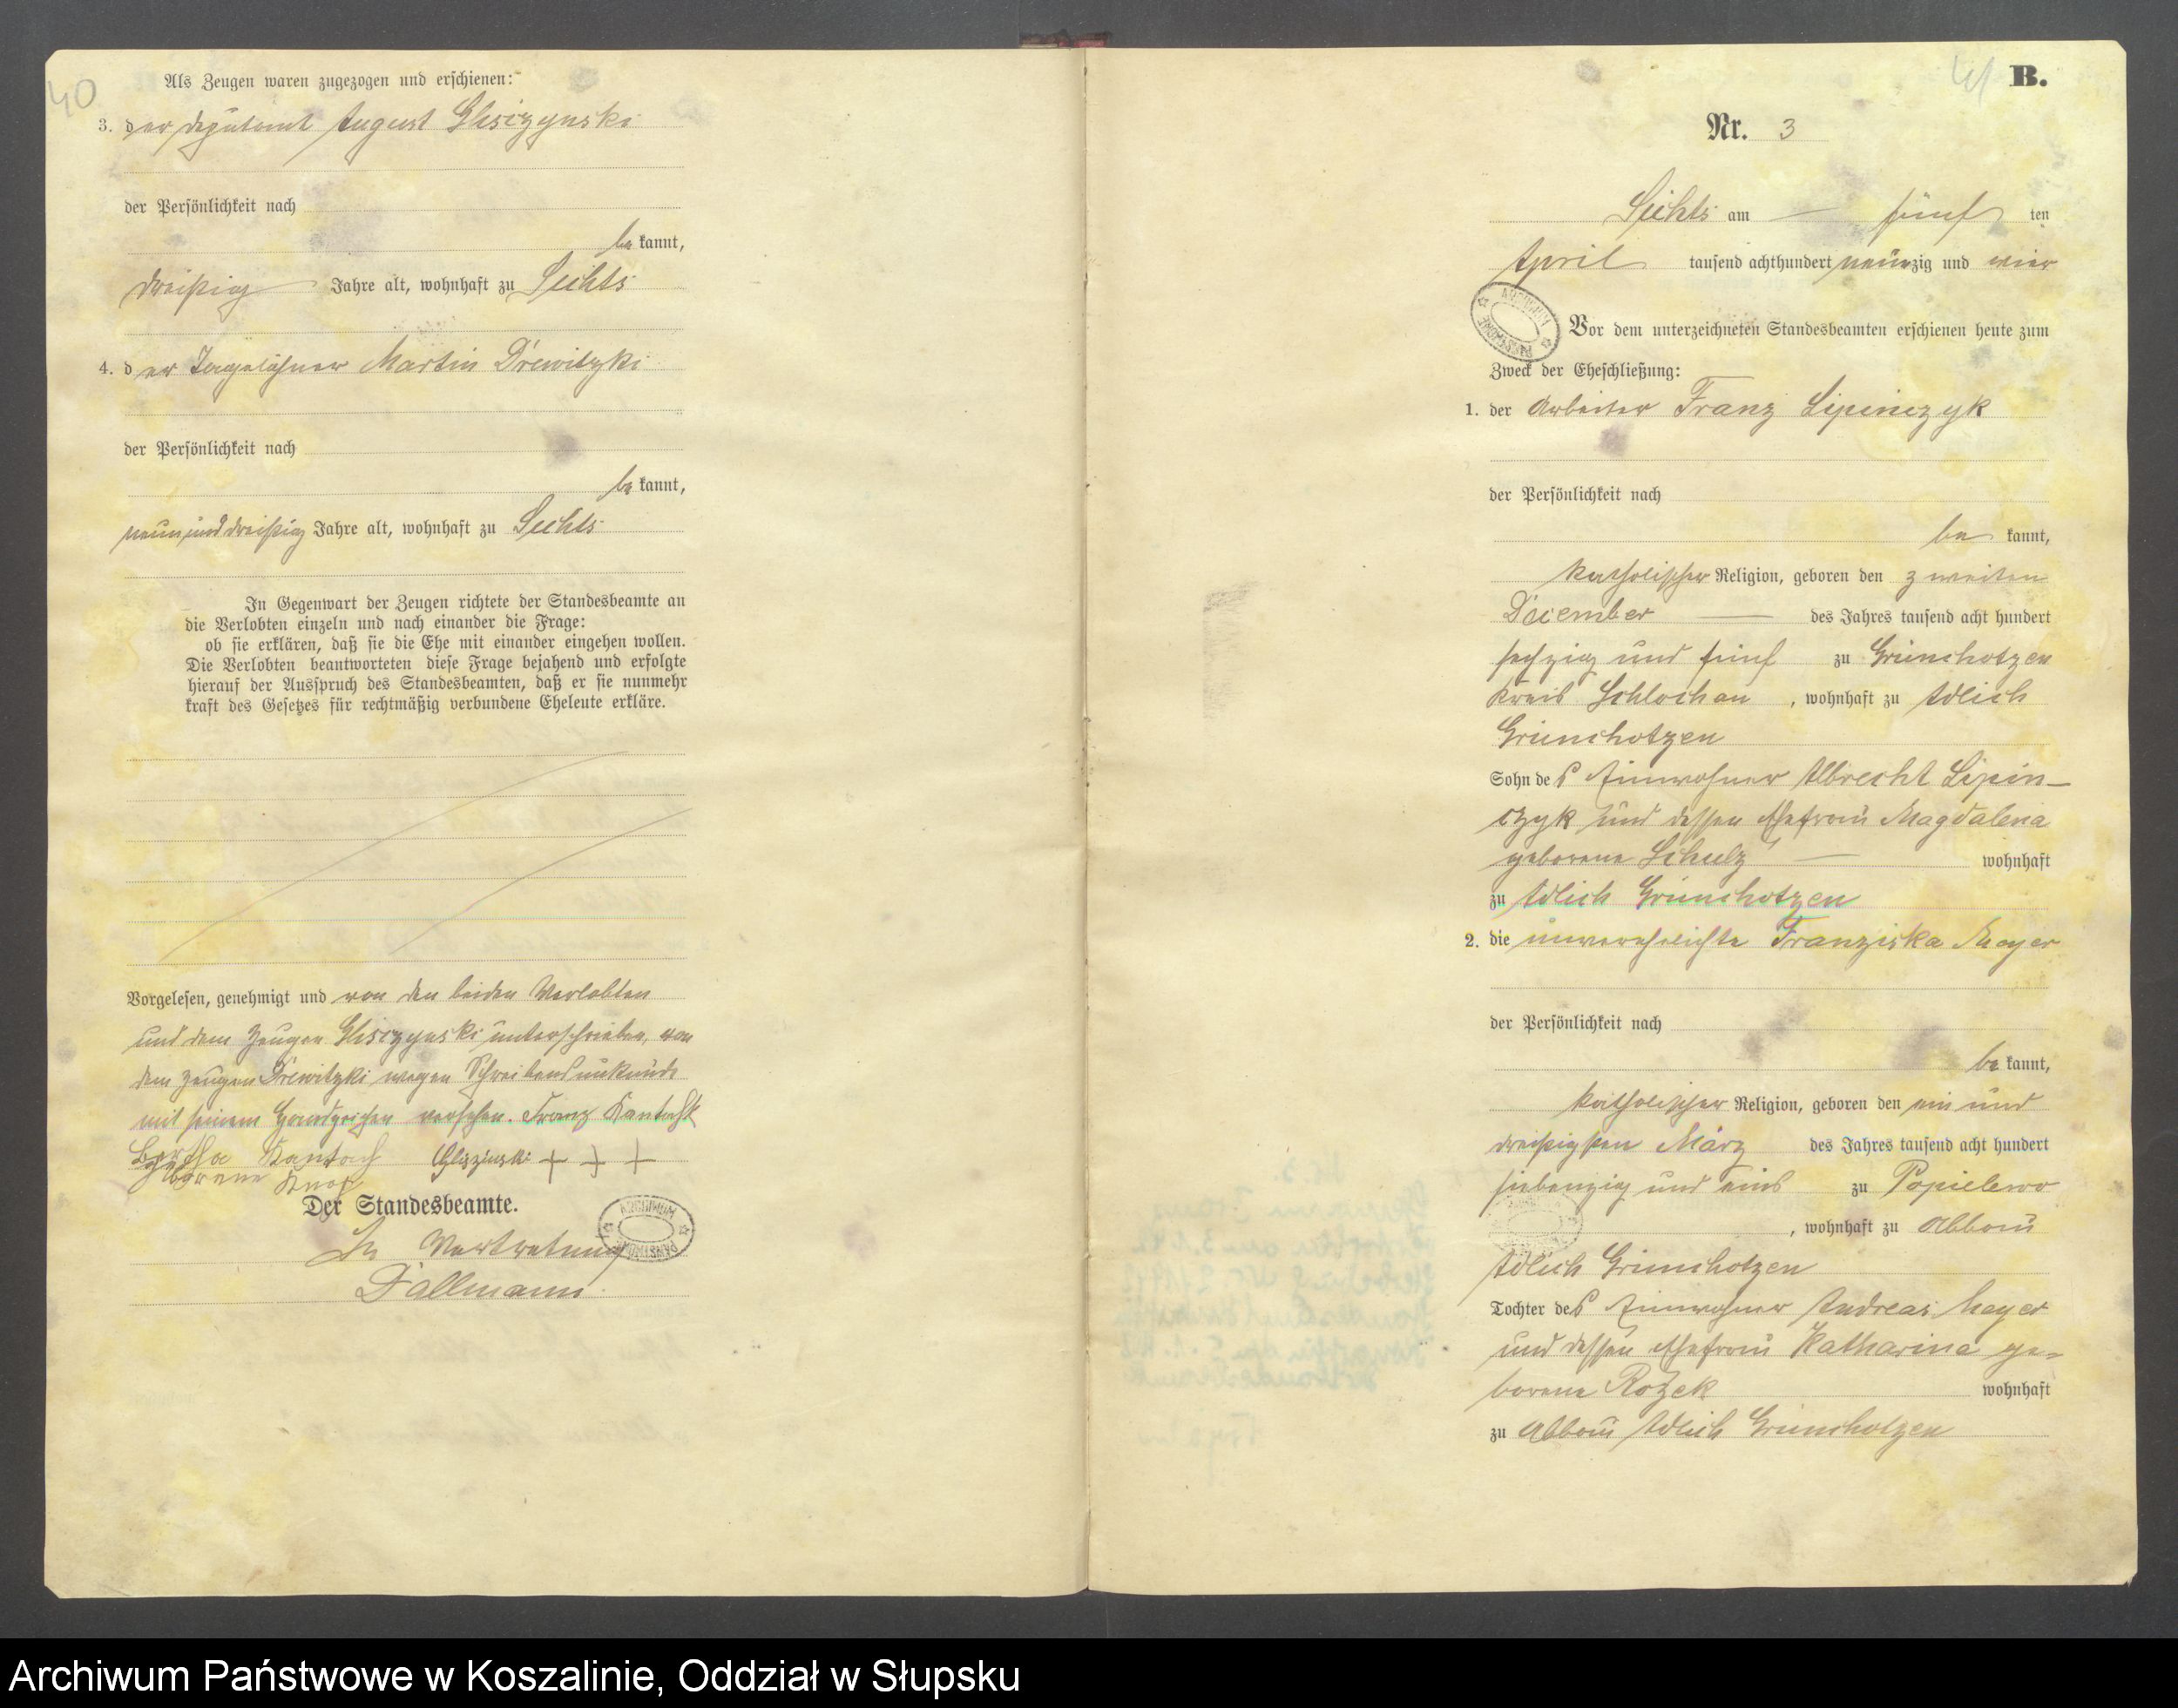 40
Als Zeugen waren zugezogen und erschienen:
3. der Deputant August Gliszynski
der Persönlichkeit nach
be kannt,
dreißig Jahre alt, wohnhaft zu Sichts
4. der Tagelöhner Martin Drewitzki
der Persönlichkeit nach
be kannt,
neununddreißig Jahre alt, wohnhaft zu Sichts
In Gegenwart der Zeugen richtete der Standesbeamte an
die Verlobten einzeln und nach einander die Frage:
ob sie erklären, daß sie die Ehe mit einander eingehen wollen.
Die Verlobten beantworteten diese Frage bejahend und erfolgte
hierauf der Ausspruch des Standesbeamten, daß er sie nunmehr
kraft des Gesetzes für rechtmäßig verbundene Eheleute erkläre.
Vorgelesen, genehmigt und von den beiden Verlobten
und dem Zeugen Gliszynski unterschrieben, von
dem Zeugen Drewitzki wegen Schreibensunkunde
mit seinem Handzeichen versehen. Franz Kantack
Bertha Kantack Gliszinski + + +
geborene Knop
Der Standesbeamte.
In Vertretung
Dallmann.
ARCHIWUM PAŃSTWOWE
41
B.
Nr. 3
Sichts am — fünf ten
April tausend achthundert neunzig und vier
ARCHIWUM PAŃSTWOWE
Vor dem unterzeichneten Standesbeamten erschienen heute zum
Zweck der Eheschließung:
1. der Arbeiter Franz Lipinczyk
der Persönlichkeit nach
be kannt,
katholischer Religion, geboren den zweiten
December — des Jahres tausend acht hundert
sechzig und fünf zu Grünchotzen
Kreis Schlochau, wohnhaft zu Adlich
Grünchotzen
Sohn des Einwohner Albrecht Lipin-
czyk und dessen Ehefrau Magdalena
geborene Schulz — wohnhaft
zu Adlich Grünchotzen
2. die unverehelichte Franziska Meyer
der Persönlichkeit nach
be kannt,
katholischer Religion, geboren den ein und
dreißigsten März des Jahres tausend acht hundert
siebenzig und eins zu Popielewo
, wohnhaft zu Abbau
Adlich Grünchotzen
Tochter des Einwohner Andreas Meyer
und dessen Ehefrau Katharina ge-
borene Rozek wohnhaft
zu Abbau Adlich Grünchotzen
Archiwum Państwowe w Koszalinie, Oddział w Słupsku